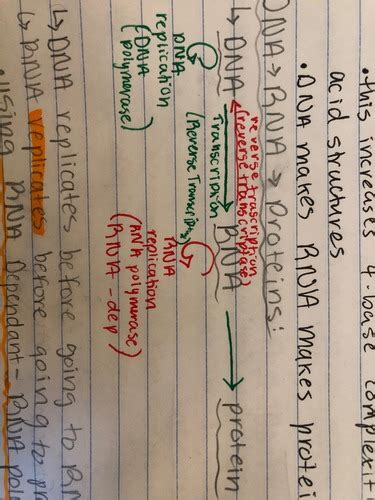 • this increases 4-base complexit
acid structures
• DNA makes RNA makes protei
DNA → RNA → Proteins:
reverse trascription
(reverse transcriptase)
↳ DNA → RNA → protein
Transcription
DNA
replication
(DNA
polymerase)
RNA
replication
(RNA polymerase
RNA-dep)
↳ DNA replicates before going to RN
↳ RNA replicates before going to pr
• Using RNA Dependant- RNA pol